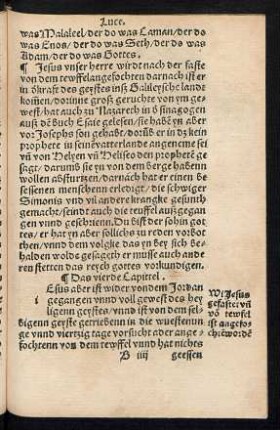 Luce.
was Malaleel/der do was Cainan/der do
was Enos/der do was Seth/der do was
Adam/der do was Gottes.
¶ Jesus vnser herre wirt nach der faste
von dem tewffel angefochten darnach ist er
in d̕ kraft des geystes insz Galileysche landt
kom̄en/dorinne ein grosz geruchte von ym ge-
west/hat auch zu Nazareth in d̕ sinagogen
ausz dē buch Esaie gelesen/sie habē yn aber
vor Josephs son gehabt/dorüb er in dz kein
prophete in seinē vatterlande angeneme ist
vn̄ von Helyen vn̄ Heliseo den prophetē ge
sagt/darumb sie yn von dem berge habenn
vollen absturtzen/darnach hat er einen be
sessenen menschenn erledigt/die schwiger
Simonis vnd vil andere krangke gesunth
gemacht/sindt auch die teuffel ausz gegan
gen vnnd geschrienn. Du bist der sohn got
tes/er hat yn aber sollichs zu reden vorbot
ten/vnnd dem volgke das yn bey sich be-
halden wolde gesageth er musse auch ande
ren stetten das reych gottes vorkundigen.
¶ Das vierde Capittel.
Esus aber ist wider von dem Jordan
i gegangen vnnd voll gewest des hey
ligenn geystes/vnnd ist von dem sel-
bigenn geyste getriebenn in die wuestenun
ge vnnd viertzig tage vorsucht ader ange-
fochtenn von dem tewffel vnnd hat nichts
B iiij geessen
Wi Jesus
gefastet vn̄
vō tewfel
ist angefo-
chtē wordē